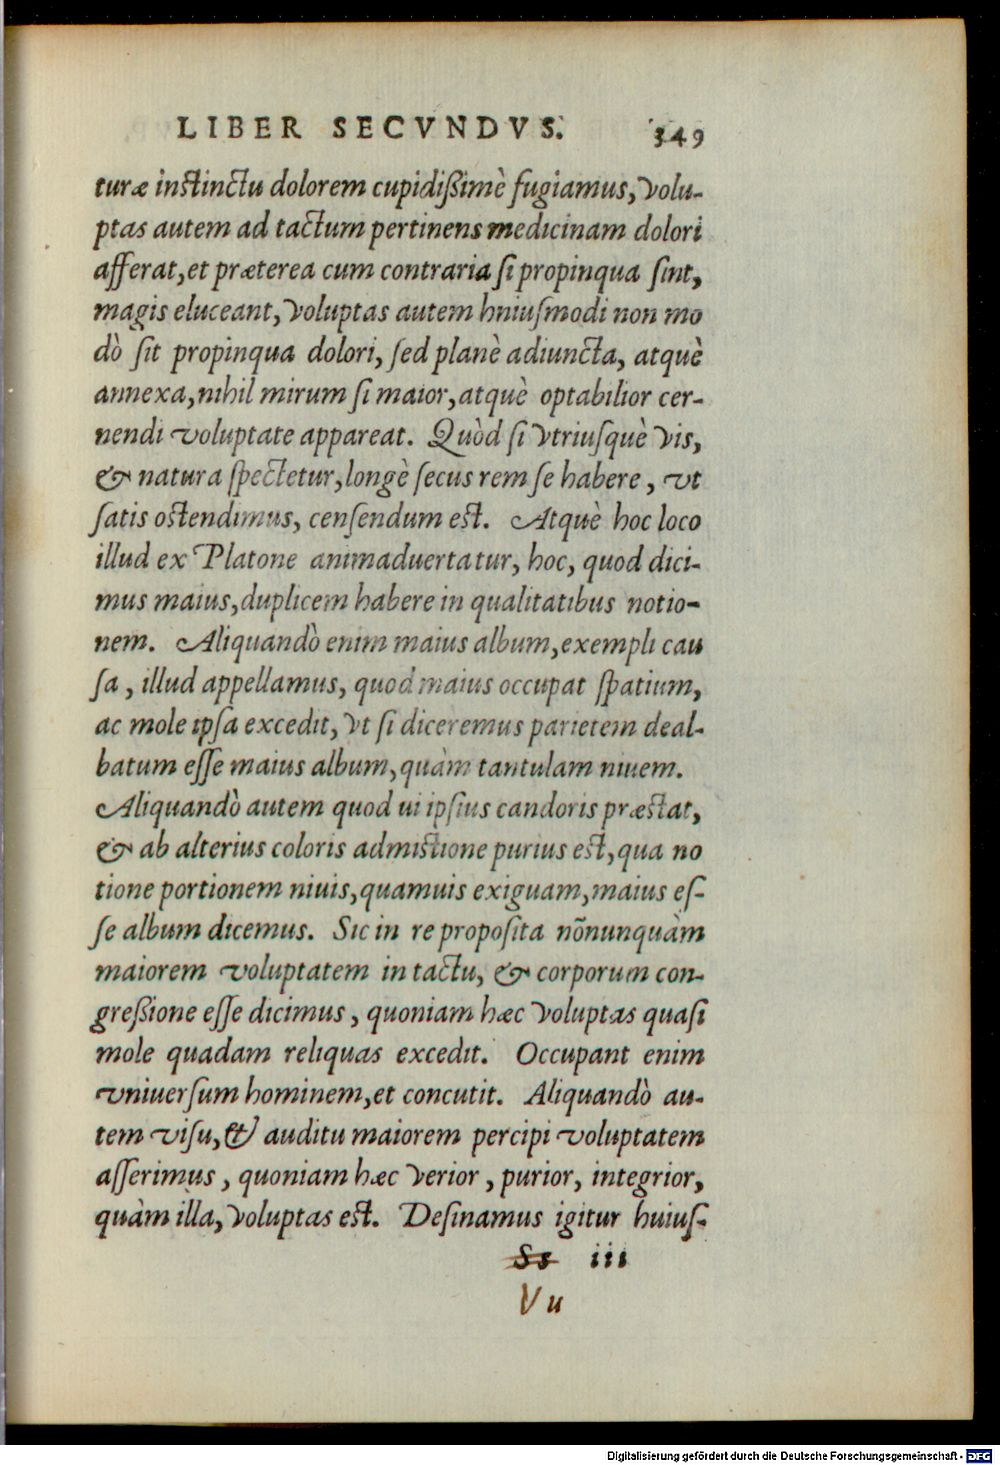 LIBER SECVNDVS. 349
turæ instinctu dolorem cupidißimè fugiamus, volu-
ptas autem ad tactum pertinens medicinam dolori
afferat, et præterea cum contraria si propinqua sint,
magis eluceant, voluptas autem hniusmodi non mo
dò sit propinqua dolori, sed planè adiuncta, atquè
annexa, nihil mirum si maior, atquè optabilior cer-
nendi voluptate appareat. Quòd si vtriusquè vis,
& natura spectetur, longè secus rem se habere, vt
satis ostendimus, censendum est. Atquè hoc loco
illud ex Platone animaduertatur, hoc, quod dici-
mus maius, duplicem habere in qualitatibus notio-
nem. Aliquandò enim maius album, exempli cau
sa, illud appellamus, quod maius occupat spatium,
ac mole ipsa excedit, vt si diceremus parietem deal-
batum esse maius album, quàm tantulam niuem.
Aliquandò autem quod ui ipsius candoris præstat,
& ab alterius coloris admistione purius est, qua no
tione portionem niuis, quamuis exiguam, maius es-
se album dicemus. Sic in re proposita nõnunquàm
maiorem voluptatem in tactu, & corporum con-
greßione esse dicimus, quoniam hæc voluptas quasi
mole quadam reliquas excedit. Occupant enim
vniuersum hominem, et concutit. Aliquandò au-
tem visu, & auditu maiorem percipi voluptatem
asserimus, quoniam hæc verior, purior, integrior,
quàm illa, voluptas est. Desinamus igitur huius-
Ss iii
Vu
Digitalisierung gefördert durch die Deutsche Forschungsgemeinschaft - DFG